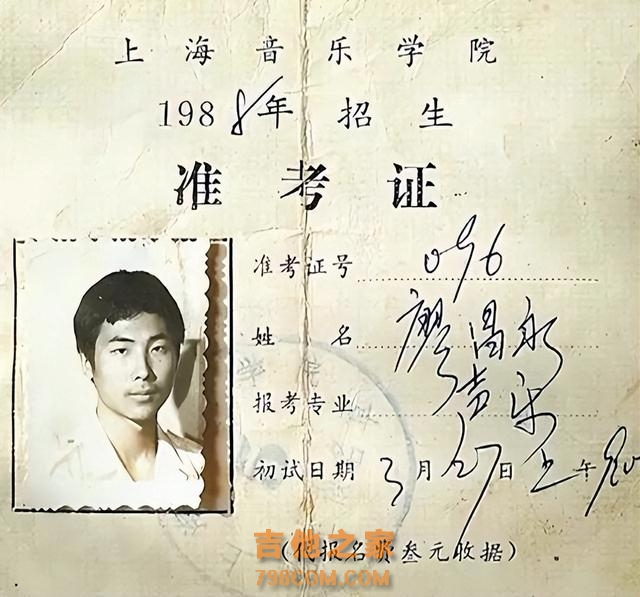 上海音乐学院
1988年 招生
准考证
准考证号 096
姓名 廖昌永
报考专业 声乐
初试日期 3月27日上午
(代报名费叁元收据)
吉他之家
798COM.COM